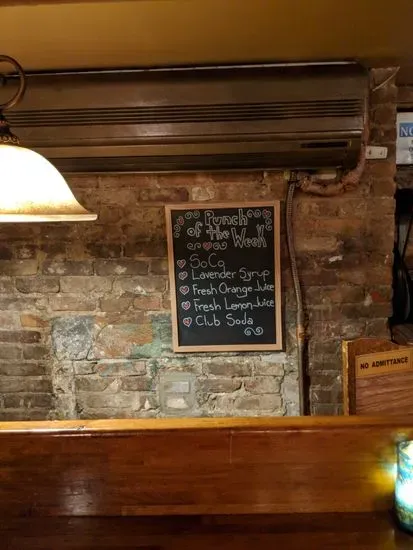 Punch
of the
Week
SoCo
Lavender Syrup
Fresh Orange Juice
Fresh Lemon Juice
Club Soda
NO ADMITTANCE